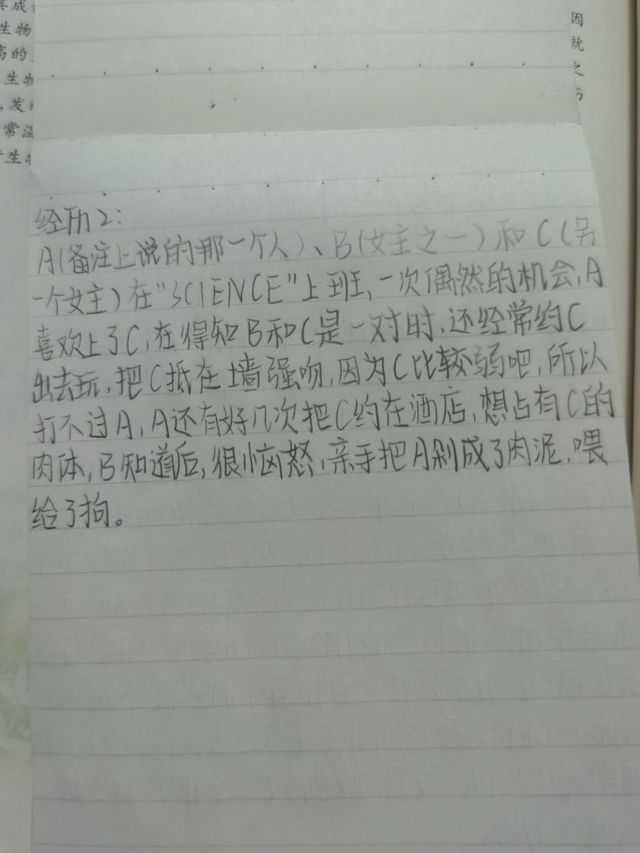 生物
高的
生物
发
常温
生物
因
就
之
经历2:
A(备注上说的那一个人)、B(女主之一)和C(另
一个女主)在"SCIENCE"上班,一次偶然的机会,A
喜欢上了C,在得知B和C是一对时,还经常约C
出去玩,把C抵在墙强吻,因为C比较弱吧,所以
打不过A,A还有好几次把C约在酒店,想占有C的
肉体,B知道后,很恼怒,亲手把A剁成了肉泥,喂
给了狗。